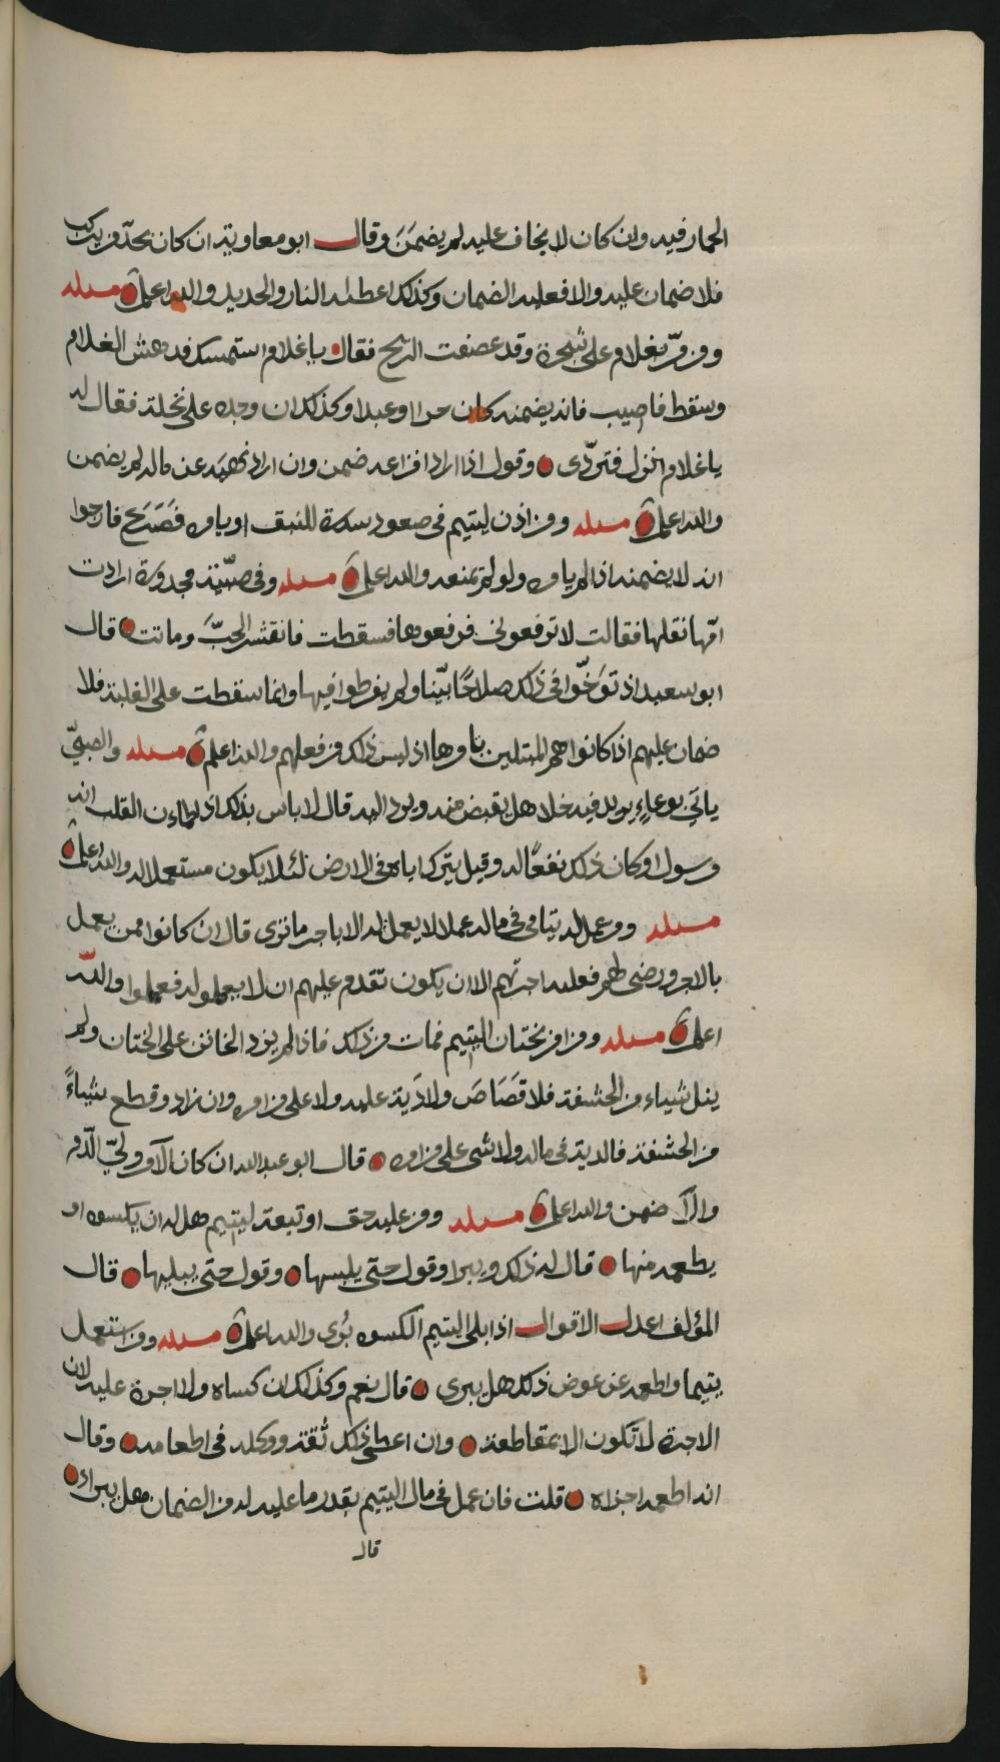 الحمار فيه وان كان لا يخاف عليه لم يضمن وقال ابو معاوية ان كان بحذو يركب
فلا ضمان عليه والا فعليه الضمان وكذلك اعطاه النار والحديد والله اعلم مسله
ومن مرّ بغلام على شجرة وقد عصفت الريح فقال يا غلام استمسك فدهش الغلام
وسقط فاصيب فانه يضمنه كان حرا او عبدا وكذلك ان وجده على نخلة فقال له
يا غلام انزل فتردّى وقول اذا اراد افزاعه ضمن وان اراد نهيه عن ماله لم يضمن
والله اعلم مسله ومن اذن ليتيم في صعود سدرة للنبق او يامره فصرع فارجوا
انه لا يضمنه اذا لم يامره ولو لم يمنعه والله اعلم مسله وفي صبيّة مجدورة ارادت
امّها نقلها فقالت لا ترفعوني فرفعوها فسقطت فانقشر الجبّ وماتت قال
ابو سعيد اذ توَخّوا في ذلك صلاحًا بيّنا ولم يفرطوا فيها وانما سقطت على الغلبة فلا
ضمان عليهم اذا كانوا هم المبتلين بامرها اذ ليس ذلك من فعلهم والله اعلم مسله والصبيّ
ياتي بوعاءٍ يريد فيه خلا هل يقبض منه ويرد اليه قال لا باس بذلك اذ اطمان القلب انه
رسول او كان ذلك نفعًا له وقيل يترك اياه في الارض لئلا يكون مستعملا له والله اعلم
مسله ومن عمل له يتامى في ماله عملا لا يعمل له الا باجر ما ترى قال ان كانوا ممن يعمل
بالاجر ورضي لهم فعليه اجرتهم الا ان يكون تقدم عليهم ان لا يعملوا له فعملوا والله
اعلم مسله ومن امر بختان اليتيم فمات من ذلك فاذا لم يزد الخاتن على الختان ولم
ينل شياء من الحشفة فلا قصَاصَ ولا دية عليه ولا على من امره وان زاد وقطع شياءً
من الحشفة فالدية في ماله ولا شي على من امره قال ابو عبدالله ان كان الآمر وليّ الدّم
والاّ ضمن والله اعلم مسله ومن عليه حق او تبعة ليتيم هل له ان يكسوه او
يطعمه منها قال له ذلك ويبرا وقول حتى يلبسها وقول حتى يبليها قال
المؤلف اعدل الاقوال اذا ابلى اليتيم الكسوه بُرى والله اعلم مسله ومن استعمل
يتيما واطعمه عن عوض ذلك هل يبرى قال نعم وكذلك ان كساه ولا اجرة عليه لان
الاجرة لا تكون الا بمقاطعة وان اعطى ذلك ثقة ووكله في اطعامه وقال
انه اطعمه اجزاه قلت فان عمل في مال اليتيم بقدر ما عليه له من الضمان هل يبراه
قال